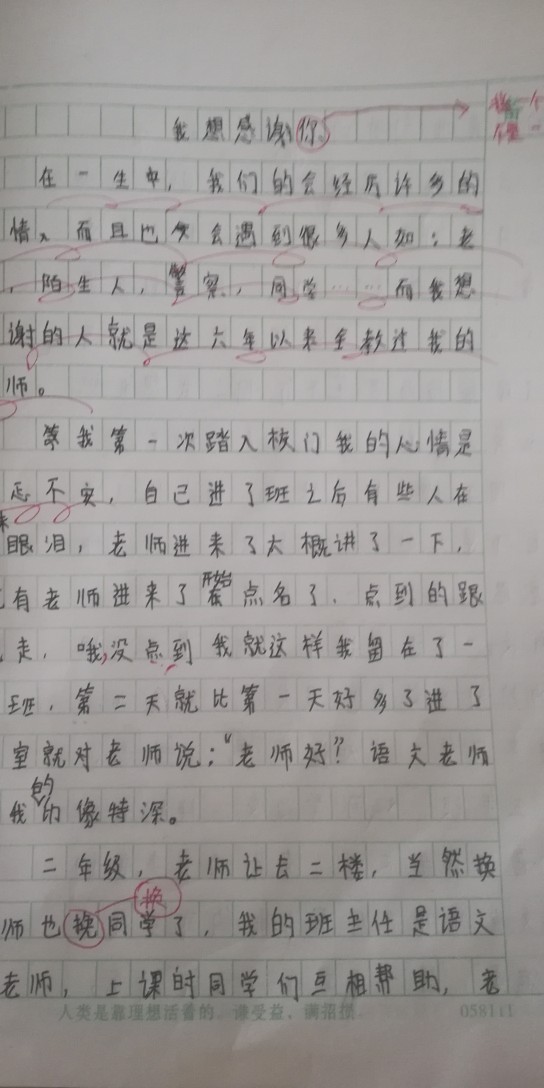 我想感谢你
在一生中，我们的会经历许多的
情，而且也会遇到很多人如：老
，陌生人，警察，同学……而我想
谢的人就是这六年以来全教过我的
师。
等我第一次踏入校门我的心情是
忐不安，自己进了班之后有些人在
眼泪，老师进来了大概讲了一下，
有老师进来了开始点名了．点到的跟
走．哦，没点到我就这样我留在了一
班．第二天就比第一天好多了进了
室就对老师说：“老师好？语文老师
我的印像特深。
二年级，老师让去二楼，当然换
换
师也挽同学了，我的班主任是语文
老师，上课时同学们互相帮助，老
人类是靠理想活着的。谦受益，满招损。 0581